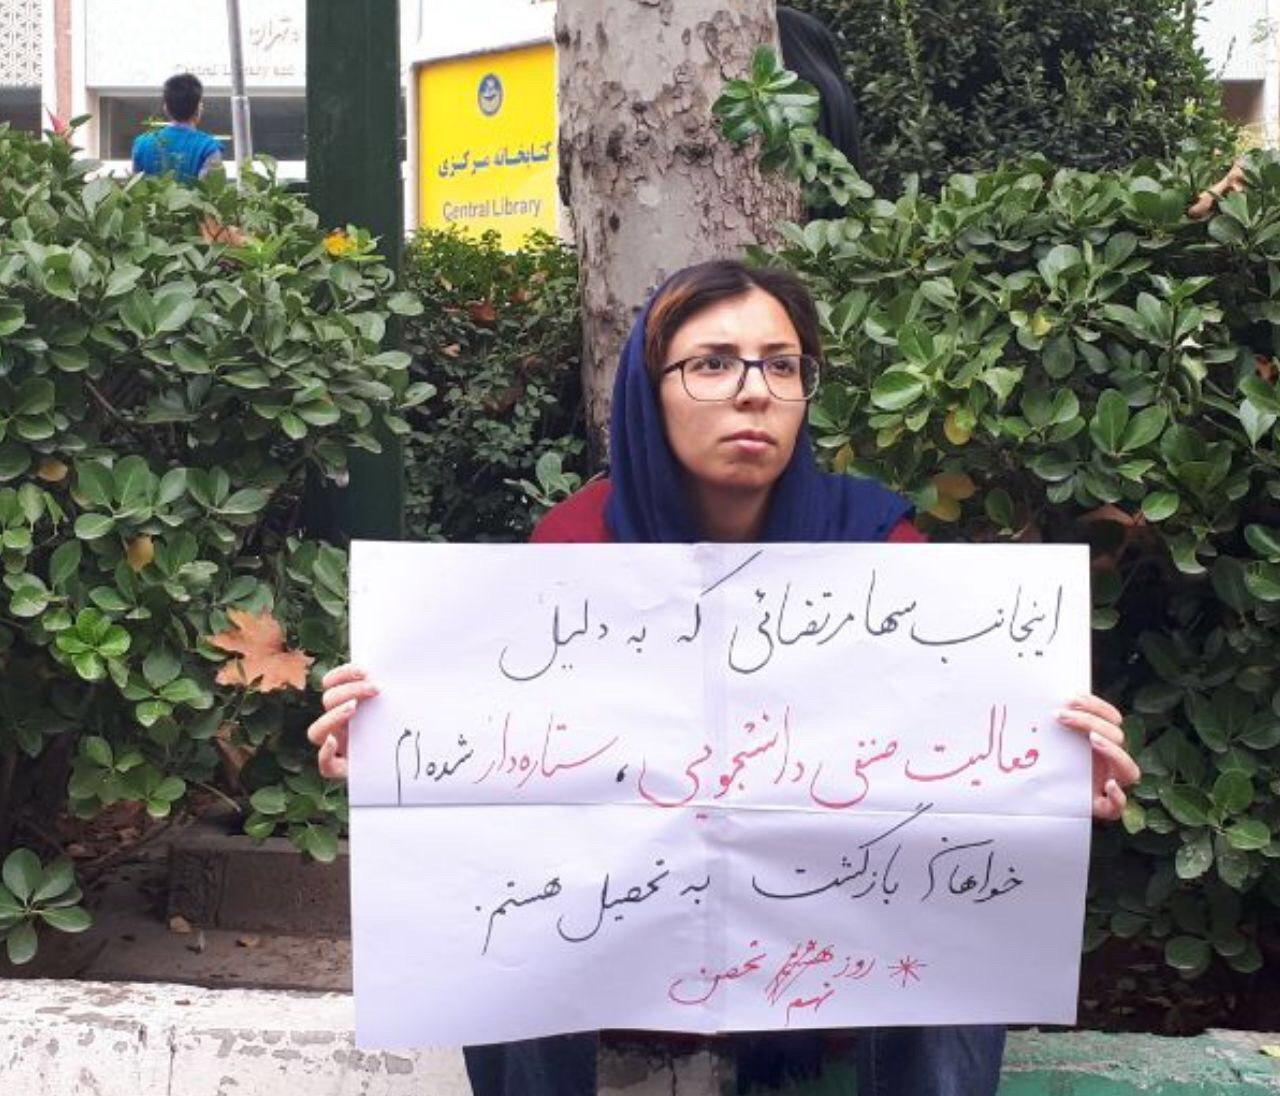 تهران
Central Library and
کتابخانه مرکزی
Central Library
اینجانب سها مرتضائی که به دلیل
فعالیت صنفی دانشجویی، ستاره‌دار شده‌ام
خواهان بازگشت به تحصیل هستم.
* روز هشتم تحصن
نهم